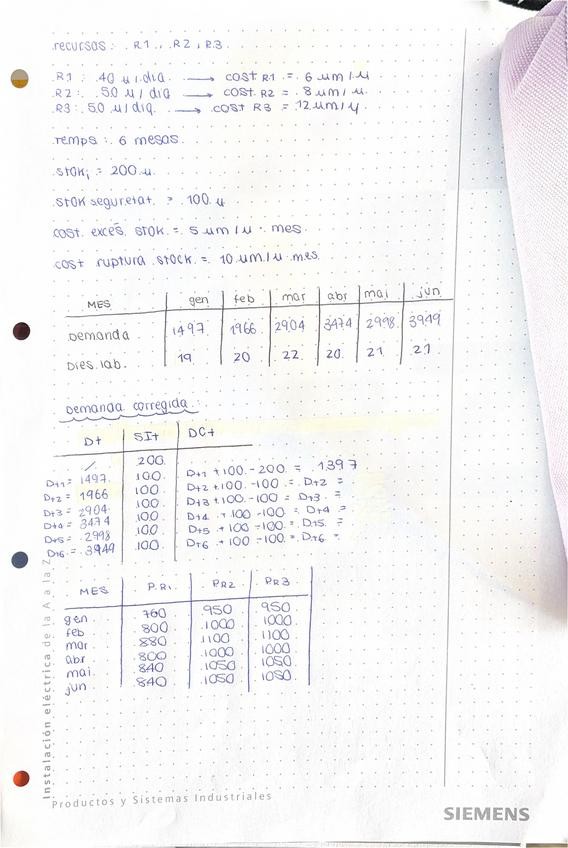 recursos: R1, R2, R3
R1: 40 u/dia → cost R1 = 6 um/u
R2: 50 u/dia → cost R2 = 8 um/u
R3: 50 u/dia → cost R3 = 12 um/u
temps: 6 mesos
stok i = 200 u
stok seguretat = 100 u
cost excés stok = 5 um/u · mes
cost ruptura stock = 10 um/u mes
MES gen feb mar abr mai jun
Demanda 1497 1966 2904 3474 2998 3949
Dies lab. 19 20 22 20 21 21
Demanda corregida:
Dt SIt DCt
/ 200
Dt1 = 1497 100 Dt1 + 100 - 200 = 1397
Dt2 = 1966 100 Dt2 + 100 - 100 = Dt2 =
Dt3 = 2904 100 Dt3 + 100 - 100 = Dt3 =
Dt4 = 3474 100 Dt4 + 100 - 100 = Dt4 =
Dt5 = 2998 100 Dt5 + 100 - 100 = Dt5 =
Dt6 = 3949 100 Dt6 + 100 - 100 = Dt6 =
MES PR1 PR2 PR3
gen 760 950 950
feb 800 1000 1000
mar 880 1100 1100
abr 800 1000 1000
mai 840 1050 1050
jun 840 1050 1050
Instalación eléctrica de la A a la Z
Productos y Sistemas Industriales
SIEMENS